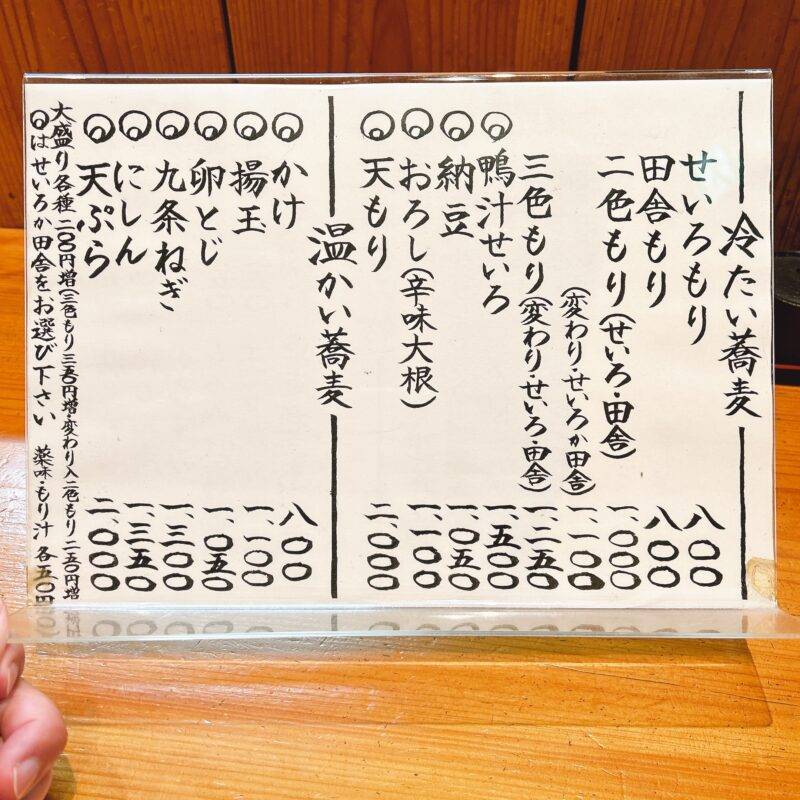 冷たい蕎麦
せいろもり 八〇〇
田舎もり 八〇〇
二色もり(せいろ・田舎) 一、〇〇〇
(変わり・せいろか田舎) 一、一〇〇
三色もり(変わり・せいろ・田舎) 一、二五〇
◎鴨汁せいろ 一、五〇〇
◎納豆 一、〇五〇
◎おろし(辛味大根) 一、一〇〇
◎天もり 二、〇〇〇
温かい蕎麦
◎かけ 八〇〇
◎揚玉 一、一〇〇
◎卵とじ 一、〇五〇
◎九条ねぎ 一、三〇〇
◎にしん 一、三五〇
◎天ぷら 二、〇〇〇
大盛り各種 二〇〇円増(三色もり 三五〇円増・変わり入二色もり 二五〇円増
◎はせいろか田舎をお選び下さい 薬味・もり汁 各五〇円